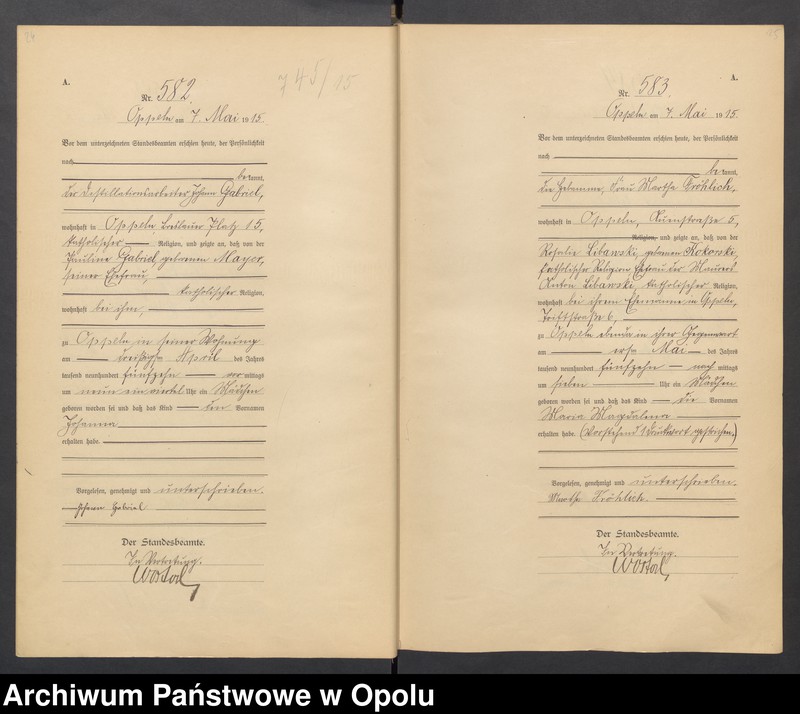 A.
Nr. 582.
745/15
Oppeln am 7. Mai 1915.
Vor dem unterzeichneten Standesbeamten erschien heute, der Persönlichkeit
nach
bekannt,
der Destillationsarbeiter Johann Gabriel,
wohnhaft in Oppeln Breslauer Platz 15,
katholischer Religion, und zeigte an, daß von der
Pauline Gabriel geborenen Mayer,
seiner Ehefrau,
katholischer Religion,
wohnhaft bei ihm,
zu Oppeln in seiner Wohnung
am dreißigsten April des Jahres
tausend neunhundert fünfzehn vormittags
um neun ein viertel Uhr ein Mädchen
geboren worden sei und daß das Kind den Vornamen
Johanna
erhalten habe.
Vorgelesen, genehmigt und unterschrieben.
Johann Gabriel
Der Standesbeamte.
In Vertretung.
A.
Nr. 583.
Oppeln am 7. Mai 1915.
Vor dem unterzeichneten Standesbeamten erschien heute, der Persönlichkeit
nach
bekannt,
die Hebamme, Frau Martha Fröhlich,
wohnhaft in Oppeln, 5,
Religion, und zeigte an, daß von der
Rosalie Libawski, geborenen Kokowski,
katholischer Religion, Ehefrau des Maurers
Anton Libawski, katholischer Religion,
wohnhaft bei ihrem Ehemanne in Oppeln,
Triftstraße 6,
zu Oppeln ebenda in ihrer Gegenwart
am ersten Mai des Jahres
tausend neunhundert fünfzehn nachmittags
um sieben Uhr ein Mädchen
geboren worden sei und daß das Kind die Vornamen
Maria Magdalena
erhalten habe. (Vorstehend 1 Druckwort gestrichen.)
Vorgelesen, genehmigt und unterschrieben.
Martha Fröhlich.
Der Standesbeamte.
In Vertretung.
Archiwum Państwowe w Opolu